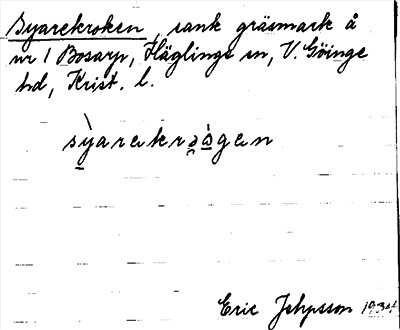 Syarekroken, sank gräsmark å
nr 1 Bosarp, Häglinge sn, V. Göinge
hd, Krist. l.
sỳarekrəàgen
Eric Jehpsson 1934